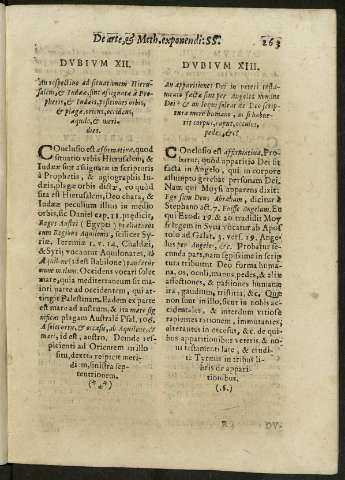 De arte, & Meth. exponendi. SS.
263
DVBIVM XII.
An respectivo ad situationem Hieru-
salem, & Iudaeae, sint assignatae à Pro-
phetis, & Iudaeis, positiones orbis,
& plagae, oriens, occidens,
aquilo, & meri-
dies.
Conclusio est affirmatiua, quod
situatio vrbis Hierusalem, &
Iudaeae sint assignatae in scripturis
à Prophetis, & agiographis Iu-
daeis, plagae orbis dictae, eo quòd
sita est Hierusalem, Deo chara, &
Iudaeae peculium illius in medio
orbis, sic Daniel cap. 11. praedicit,
Reges Austri (Egypti) praeliaturos
cum Regibus Aquilonis, scilicet Sy-
riae. Ieremia 1. v. 14. Chaldaei,
& Syrij vocantur Aquilonares, ib
Ab aquilone (idest Babilone) pandetur
omne malum. Occidens vocari solet
mare, quia mediterraneum sit ma-
iori parte ad occidentem, qui at-
tingit Palestinam. Eadem ex parte
est mare ad austrum, & ita mare sig-
nificat plagam Australē Psal. 106.
A solis ortu, & occasu, ab Aquilone, &
mari, id est, austro. Deinde res-
picienti ad Orientem in illo
situ, dextra respicit meri-
diem, sinistra sep-
tentrionem.
DVBIVM XIII.
An apparitiones Dei in veteri testa-
mento factae sint per Angelos nomine
Dei? & an loqui soleat de Deo scrip-
tura more humano, ac si habue-
rit corpus, caput, oculos,
pedes, &c?
Conclusio est affirmatiua, Pro-
batur, quòd apparitio Dei sit
facta in Angelo, qui in corpore
assumpto gerebat personam Dei,
Nam qui Moysi apparens dixit:
Ego sum Deus Abraham, dicitur à
Stephano act. 7. Fuisse Angelum. Et
qui Exodi 19. & 20 tradidit Moy-
si legem in Syna vocatur ab Apos-
tolo ad Galat. 3. vers. 19. Ange-
lus per Angelos, &c. Probatur se-
cunda pars, nam sępissimè in scrip-
tura tribuuntur Deo forma huma-
na, os, oculi, manus pedes, & aliae
affectiones, & passiones humanae
ira, gaudium, tristitia, &c. Quae
non sunt in illo, sunt in nobis ac-
cidentales, & interdum vitiosae
rationes, immutantes,
alterantes in excessu, &c. de qui-
bus apparitionibus veteris, & no-
ui testamenti late, & erudi-
tè Turrius in tribus li-
bris de appari-
tionibus.
(.§.)
DV-